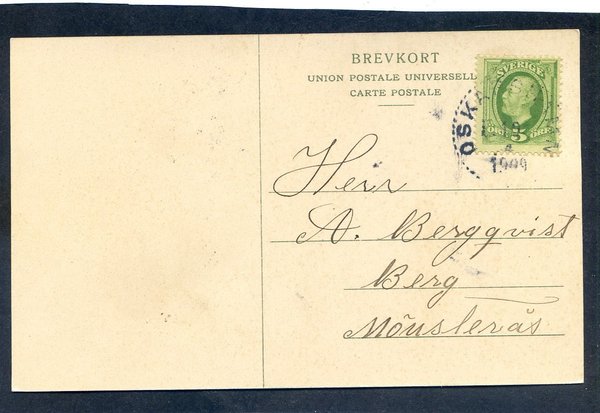 BREVKORT
UNION POSTALE UNIVERSELL
CARTE POSTALE
SVERIGE
5
ÖRE
OSKA
1909
Herr
A. Bergqvist
Berg
Mönsterås